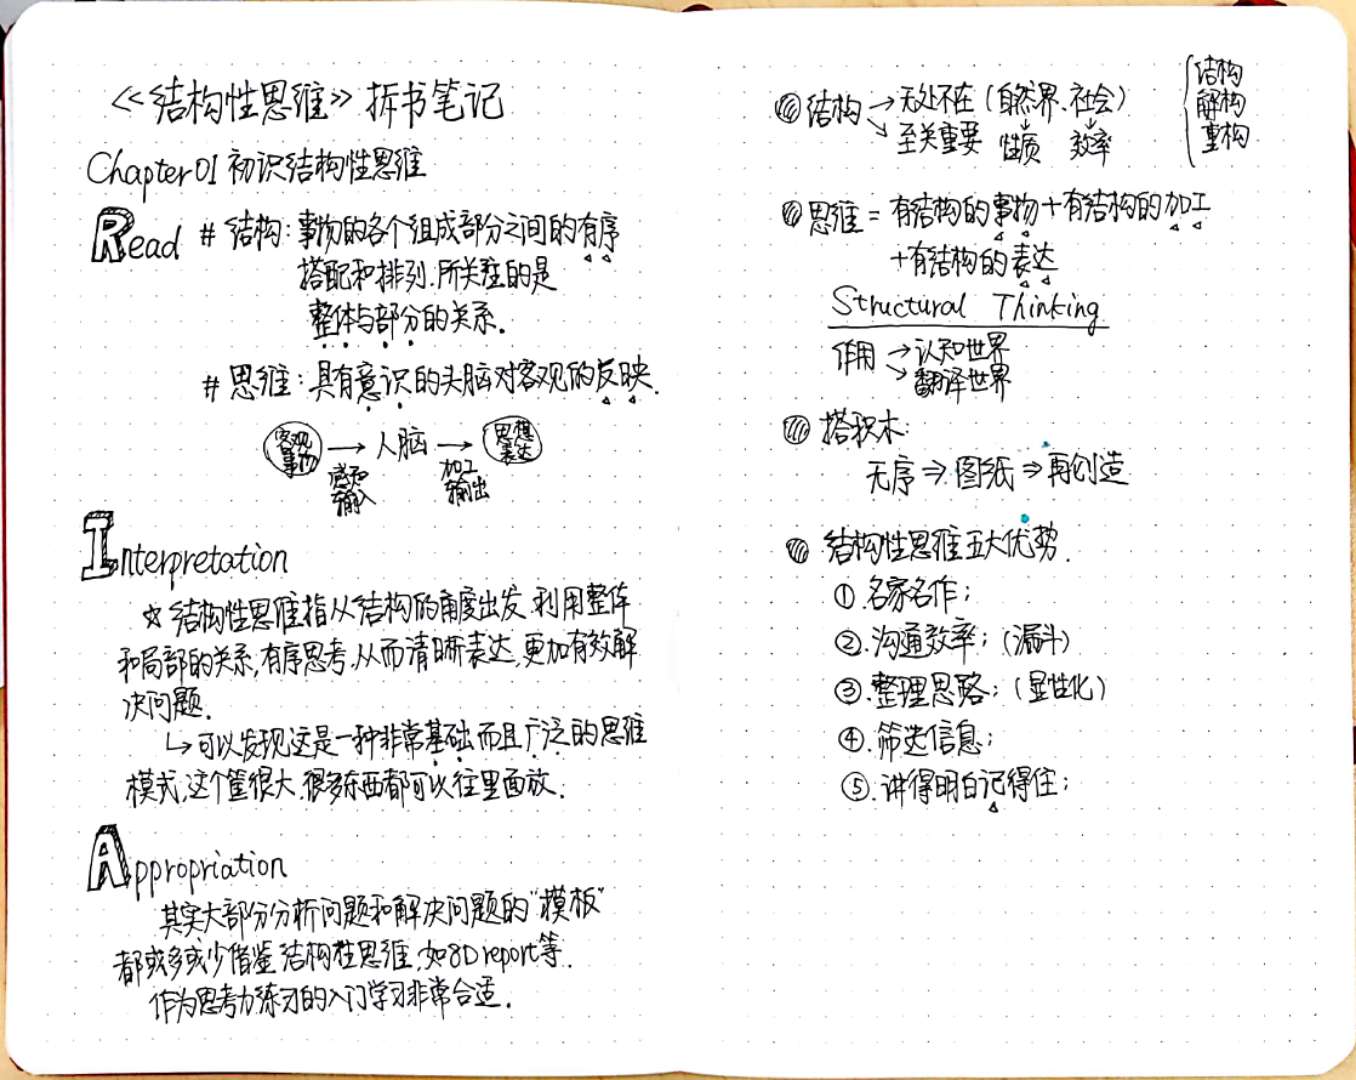 《结构性思维》拆书笔记
Chapter 01 初识结构性思维
Read # 结构：事物的各个组成部分之间的有序
搭配和排列.所关注的是
整体与部分的关系.
# 思维：具有意识的头脑对客观的反映.
客观事物 → 人脑 → 思想表达
感知输入 加工输出
Interpretation
☆ 结构性思维指从结构的角度出发.利用整体
和局部的关系,有序思考,从而清晰表达,更加有效解
决问题.
↳ 可以发现这是一种非常基础而且广泛的思维
模式,这个筐很大.很多东西都可以往里面放.
Appropriation
其实大部分分析问题和解决问题的“模板”
都或多或少借鉴结构性思维,如8D report等.
作为思考力练习的入门学习非常合适.
结构 → 无处不在（自然界.社会）
↘ 至关重要 性质 效率
结构
解构
重构
思维 = 有结构的事物+有结构的加工
+有结构的表达
Structural Thinking
作用 → 认知世界
↘ 翻译世界
搭积木:
无序 ⇒ 图纸 ⇒ 再创造
结构性思维五大优势.
①.名家名作;
②.沟通效率;（漏斗）
③.整理思路;（显性化）
④.筛选信息;
⑤.讲得明白记得住;